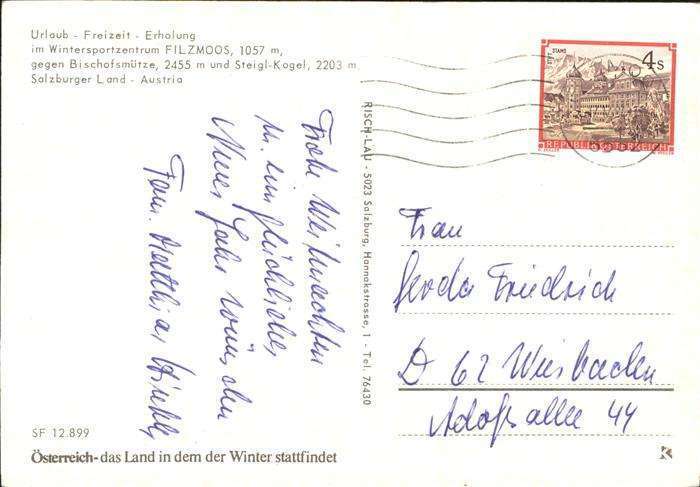 Urlaub - Freizeit - Erholung
im Wintersportzentrum FILZMOOS, 1057 m,
gegen Bischofsmütze, 2455 m und Steigl-Kogel, 2203 m
Salzburger Land - Austria
STIFT STAMS
4 S
REPUBLIK ÖSTERREICH
RISCH-LAU - 5023 Salzburg, Hannakstrasse, 1 - Tel. 76430
Frohe Weihnachten
u. ein glückliches
Neues Jahr wünschen
Fam. Matthias
Frau
Gerda Friedrich
D 62 Wiesbaden
Adolfsallee 44
SF 12.899
Österreich-das Land in dem der Winter stattfindet